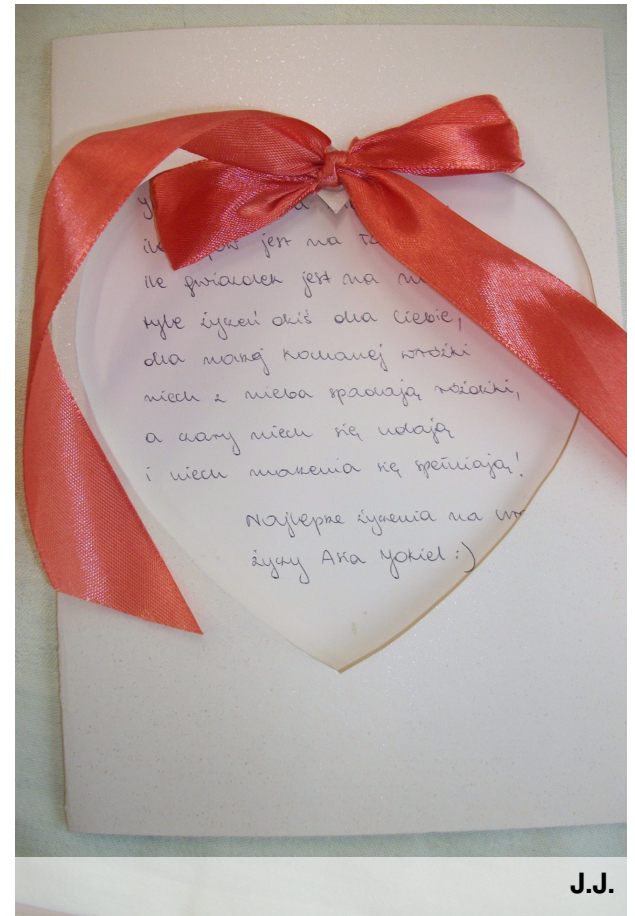 jest na
ile gwiazdek jest na
tyle życzeń dziś dla Ciebie,
dla naszej kochanej wróżki
niech z nieba spadają różdżki,
a czary niech się udają
i niech marzenia się spełniają!
Najlepsze życzenia na
życzy Asia Jokiel :)
J.J.